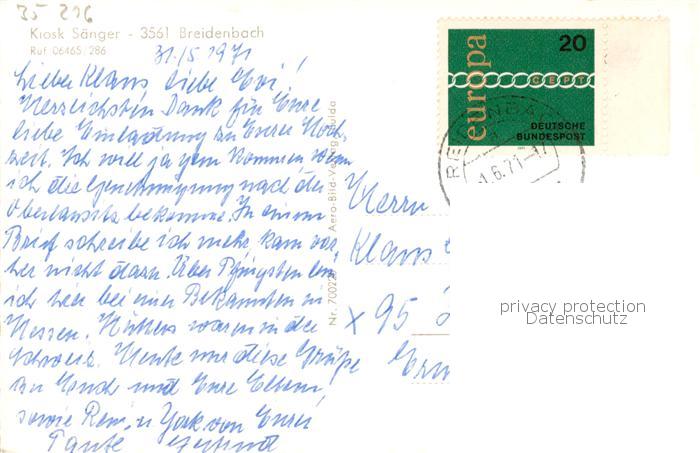 35 216
Kiosk Sänger - 3561 Breidenbach
Ruf 06465/286
31/5 1971
Lieber Klaus liebe Evi!
Herzlichsten Dank für Eure
liebe Einladung zu Eurer Hoch-
zeit. Ich will ja gern kommen wenn
ich die Genehmigung nach der
Oberlausitz bekomme. In einem
Brief schreibe ich mehr, kam vor-
her nicht dazu. Über Pfingsten bin
ich hier bei einer Bekannten in
Hessen. Hütters waren in der
Schweiz. Heute nur diese Grüße
an Euch und Eure Eltern
sowie von Eurer
Tante
Nr. 70022 Aero-Bild-Verlag Fulda
europa
20
CEPT
DEUTSCHE
BUNDESPOST
BREIDENBA
1.6.71-17
Herrn
Klaus
x 95
privacy protection
Datenschutz